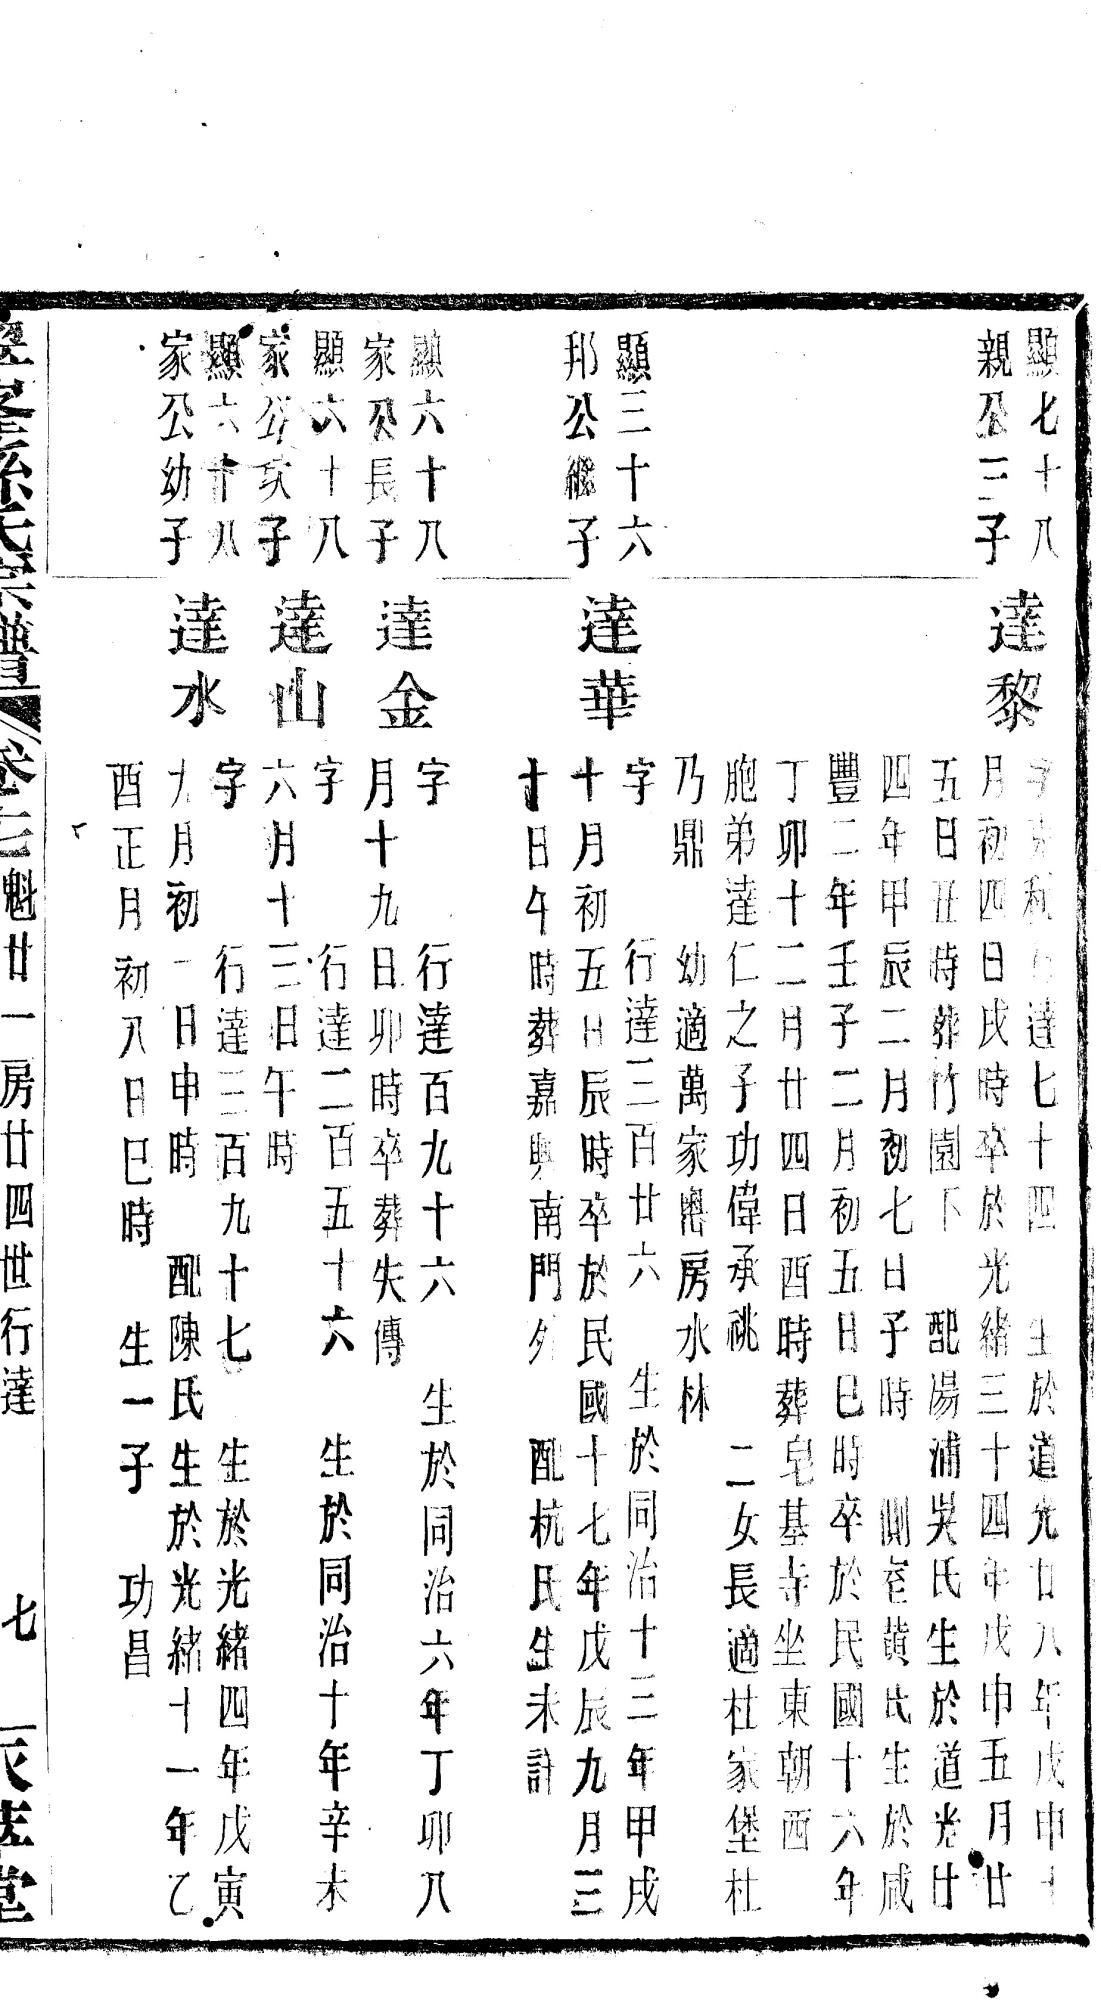 顯七十八
親公三子
達黎
字 行達七十四　生於道光廿八年戊申十
月初四日戌時卒於光緒三十四年戊申五月廿
五日丑時葬竹園下　配湯浦吳氏生於道光廿
四年甲辰二月初七日子時　側室黃氏生於咸
豐二年壬子二月初五日巳時卒於民國十六年
丁卯十二月廿四日酉時葬皂基寺坐東朝西
胞弟達仁之子功偉承祧　二女長適杜家堡杜
乃鼎　幼適萬家嶴房水林
顯三十六
邦公繼子
達華
字　行達三百廿六　生於同治十三年甲戌
十月初五日辰時卒於民國十七年戊辰九月三
十日午時葬嘉興南門外　配杭氏生未詳
顯六十八
家公長子
達金
字　行達百九十六　生於同治六年丁卯八
月十九日卯時卒葬失傳
顯六十八
家公次子
達山
字　行達二百五十六　生於同治十年辛未
六月十三日午時
顯六十八
家公幼子
達水
字　行達三百九十七　生於光緒四年戊寅
九月初一日申時　配陳氏生於光緒十一年乙
酉正月初八日巳時　生一子　功昌
孫氏宗譜　卷十七　魁廿一房廿四世行達　七　萃堂